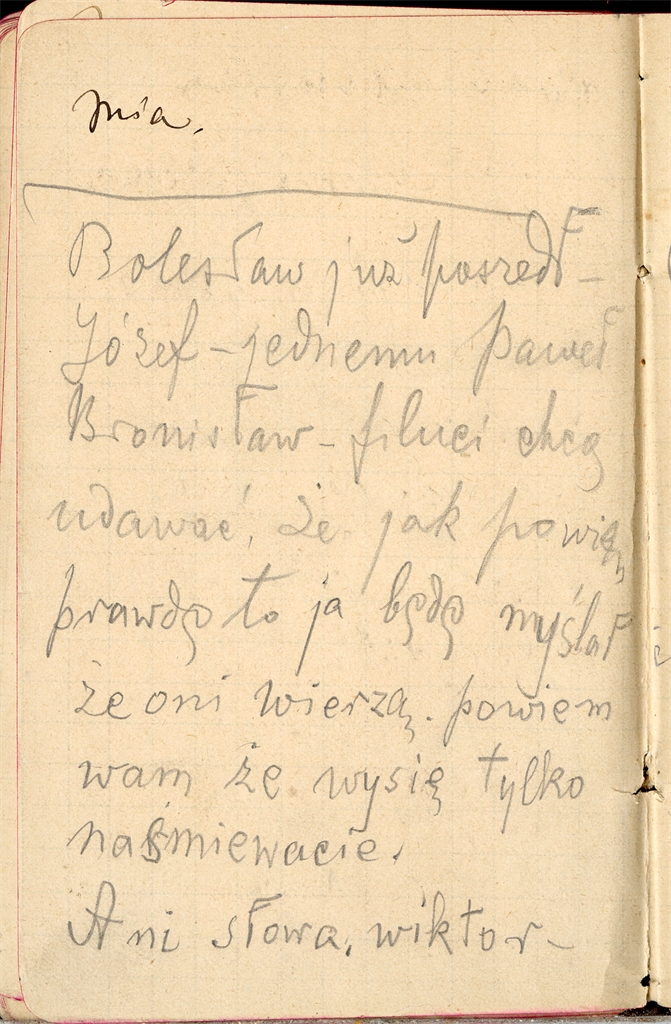 mia.
Bolesław już poszedł –
Józef – jednemu Paweł
Bronisław – filuci chcą
udawać, że jak powią
prawdę to ja będę myślał
że oni wierzą. powiem
wam że wysię tylko
naśmiewacie.
Ani słowa, wiktor –